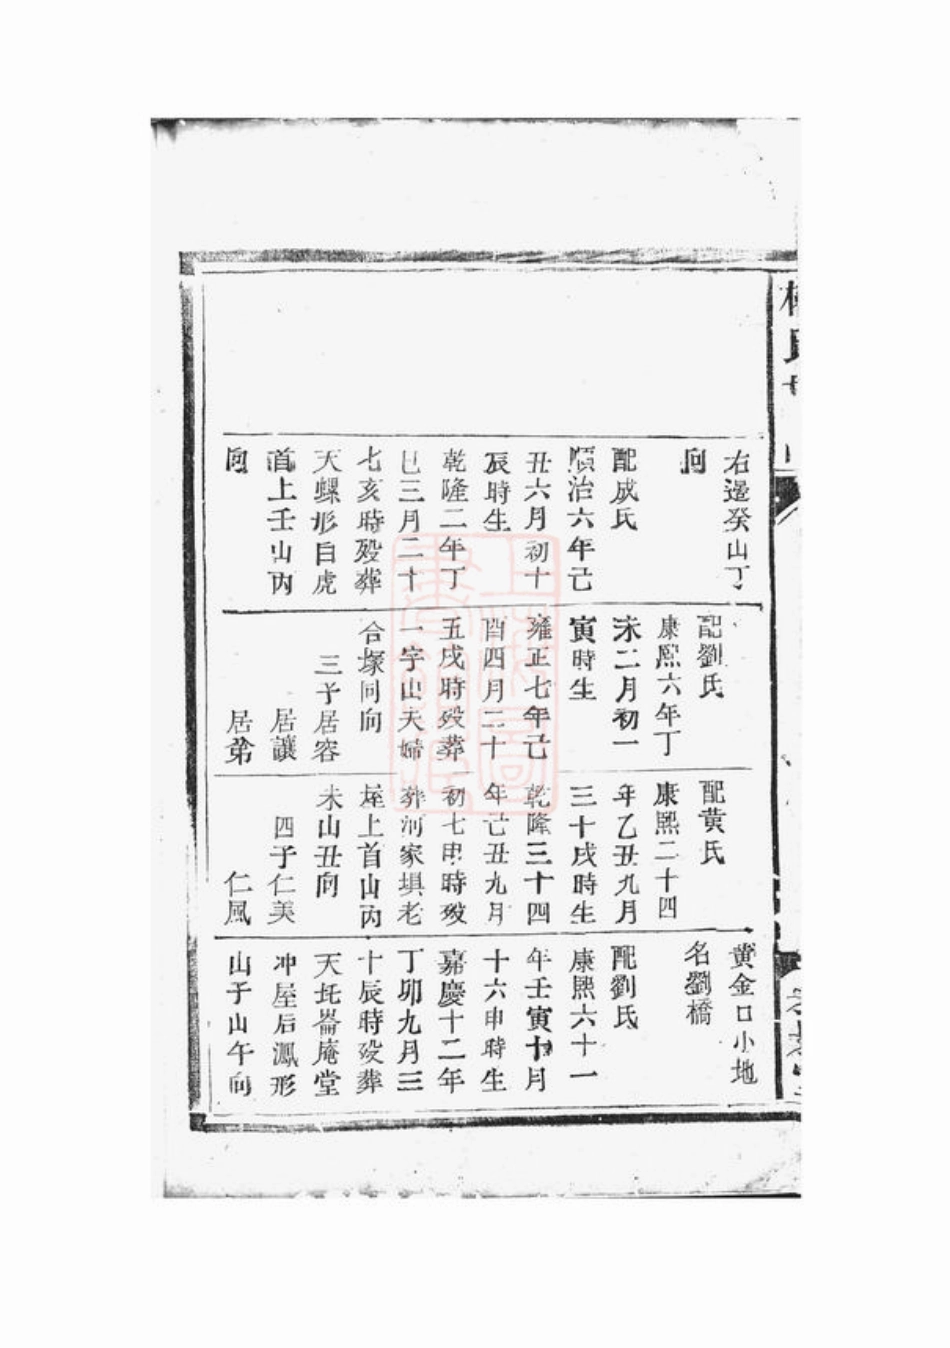 右邊癸山丁
向
配成氏
順治六年己
丑六月初十
辰時生
乾隆二年丁
巳三月二十
七亥時殁葬
天螺形白虎
首上壬山丙
向
配劉氏
康熙六年丁
未二月初一
寅時生
雍正七年己
酉四月二十
五戌時殁葬
一字山夫婦
合塚同向
三子居容
居讓
居第
配黄氏
康熙二十四
年乙丑九月
三十戌時生
乾隆三十四
年己丑九月
初七申時殁
葬河家垻老
塋上首山丙
未山丑向
四子仁美
仁風
黄金口小地
名劉橋
配劉氏
康熙六十一
年壬寅十月
十六申時生
嘉慶十二年
丁卯九月三
十辰時殁葬
天托崙庵堂
冲屋后鳳形
山子山午向